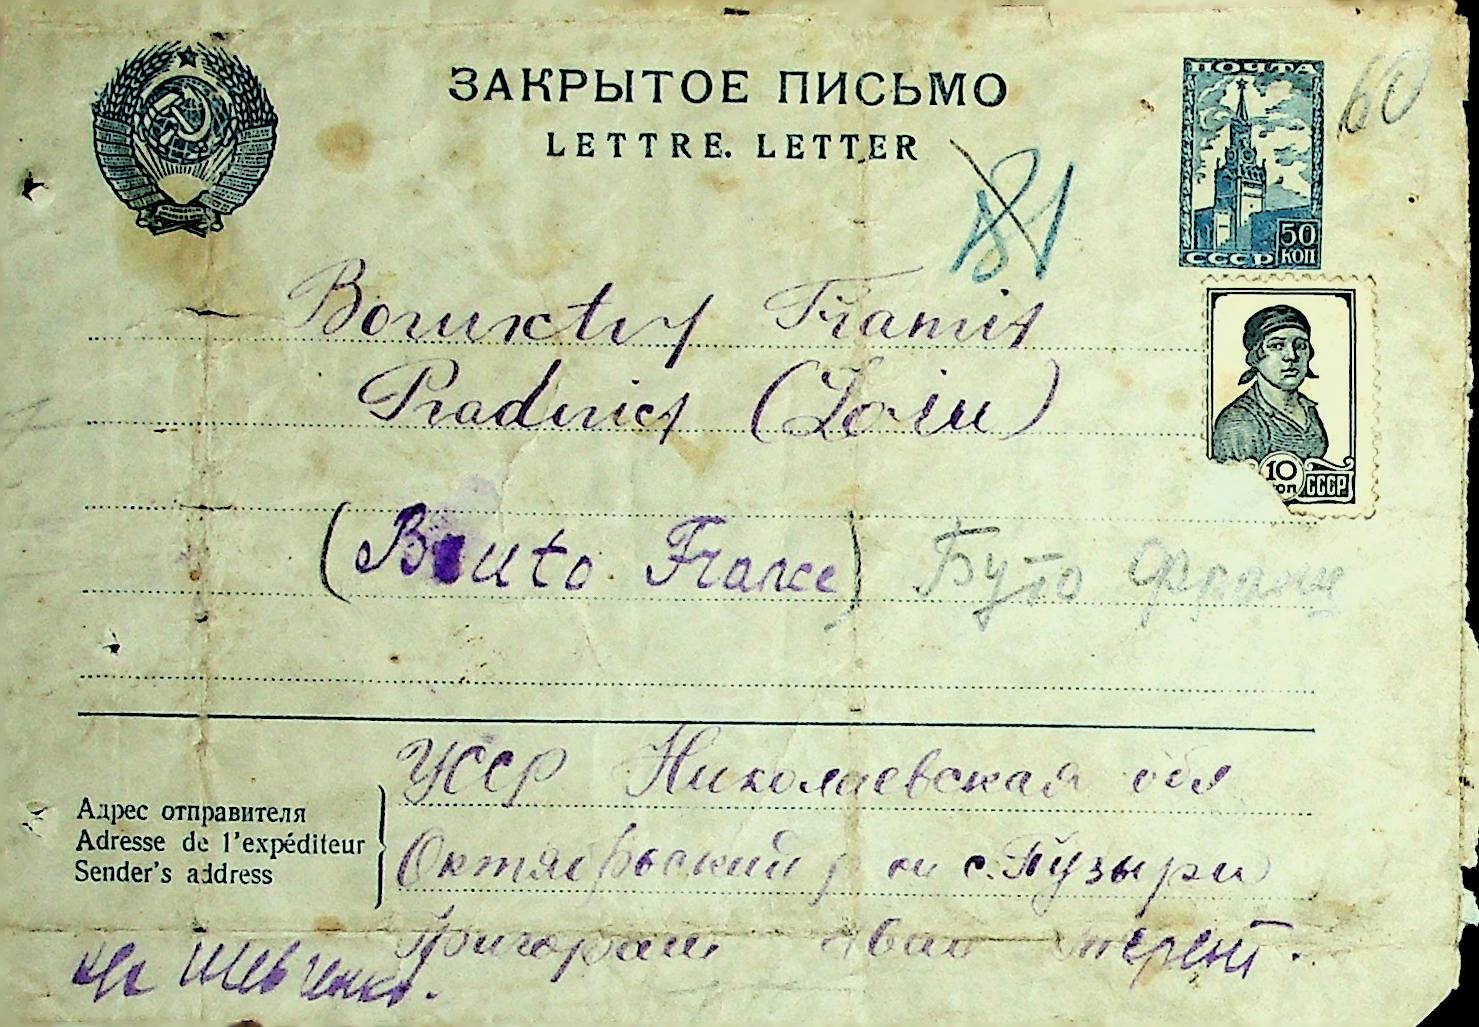 ЗАКРЫТОЕ ПИСЬМО
LETTRE. LETTER
ПОЧТА
50
КОП
СССР
60
81
Pradnies (Loiu)
10
КОП СССР
(Bouto France) Буто Франц
УССР Николаевская обл
Адрес отправителя
Adresse de l'expéditeur
Sender's address
Октябрьский р он с. Пузыри
Григораш Иван Терент.
Шевченко.